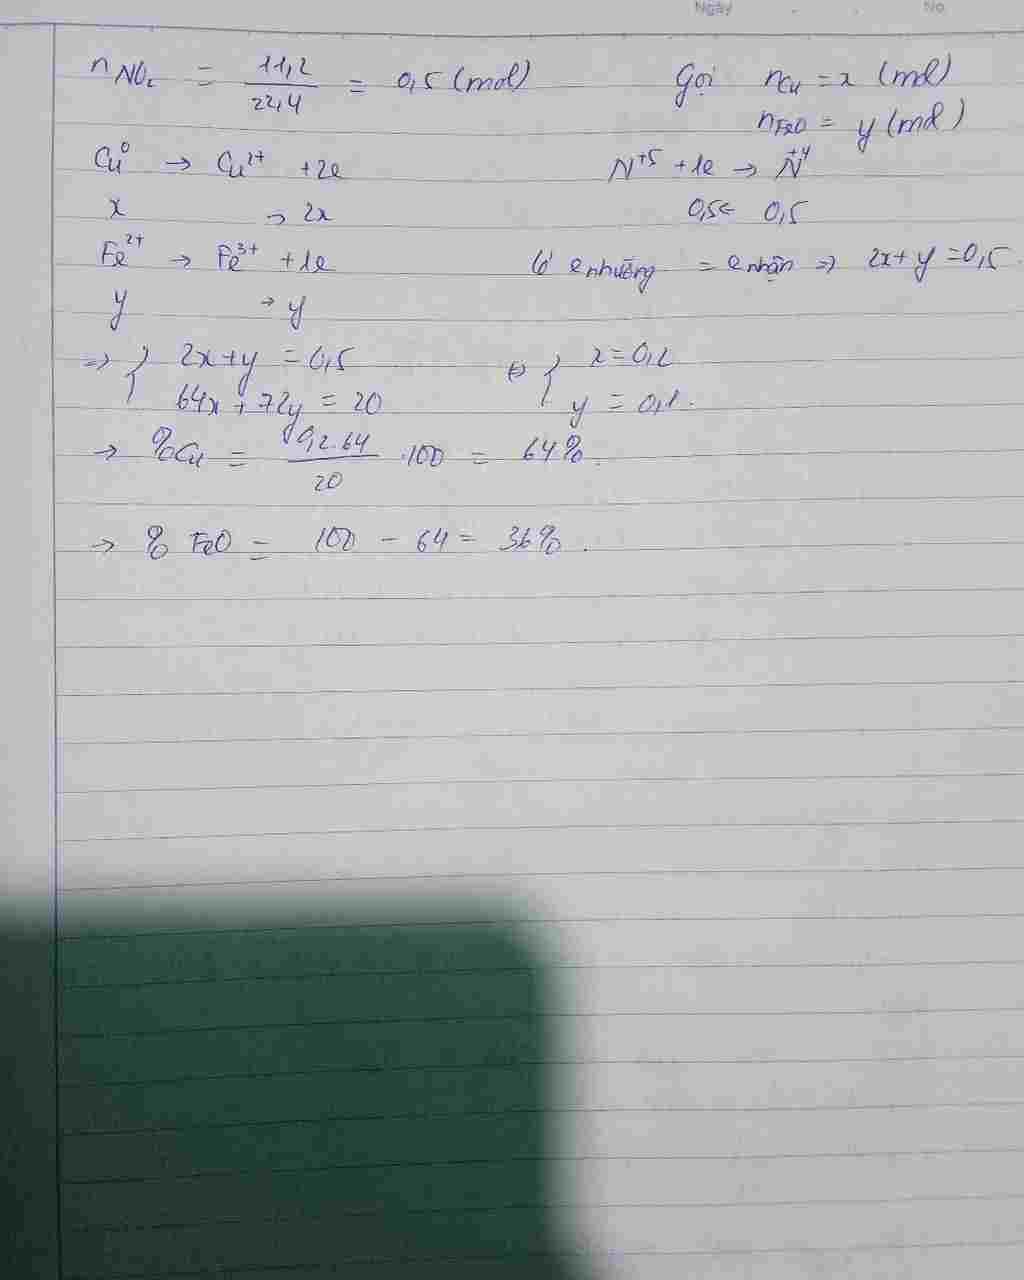 Ngày No
n NO₂ = 11,2 / 22,4 = 0,5 (mol) Gọi nCu = x (mol)
nFeO = y (mol)
Cu⁰ → Cu²⁺ + 2e N⁺⁵ + 1e → N⁺⁴
x → 2x 0,5 ← 0,5
Fe²⁺ → Fe³⁺ + 1e Có e nhường = e nhận => 2x + y = 0,5
y → y
=> { 2x + y = 0,5 <=> { x = 0,2
64x + 72y = 20 y = 0,1.
→ %Cu = 0,2.64 / 20 .100 = 64%.
→ % FeO = 100 - 64 = 36%.